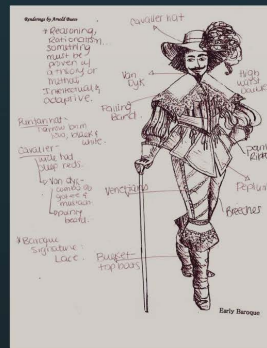 Renderings by Arnold Bueso
* Reasoning,
Rationalism..
something
must be
proven w/
a theory or
method
Intellectual &
adaptive.
Puritan hat -
narrow brim
tall, black &
white.
Cavalier -
wide had
deep reds.
Van dyk -
goatee &
pointy
beard.
* Baroque
Signature -
Lace.
Cavalier hat
Van
Dyk
High
waist
Falling
Band
Venetians
Breeches
Bucket
top boots
Early Baroque